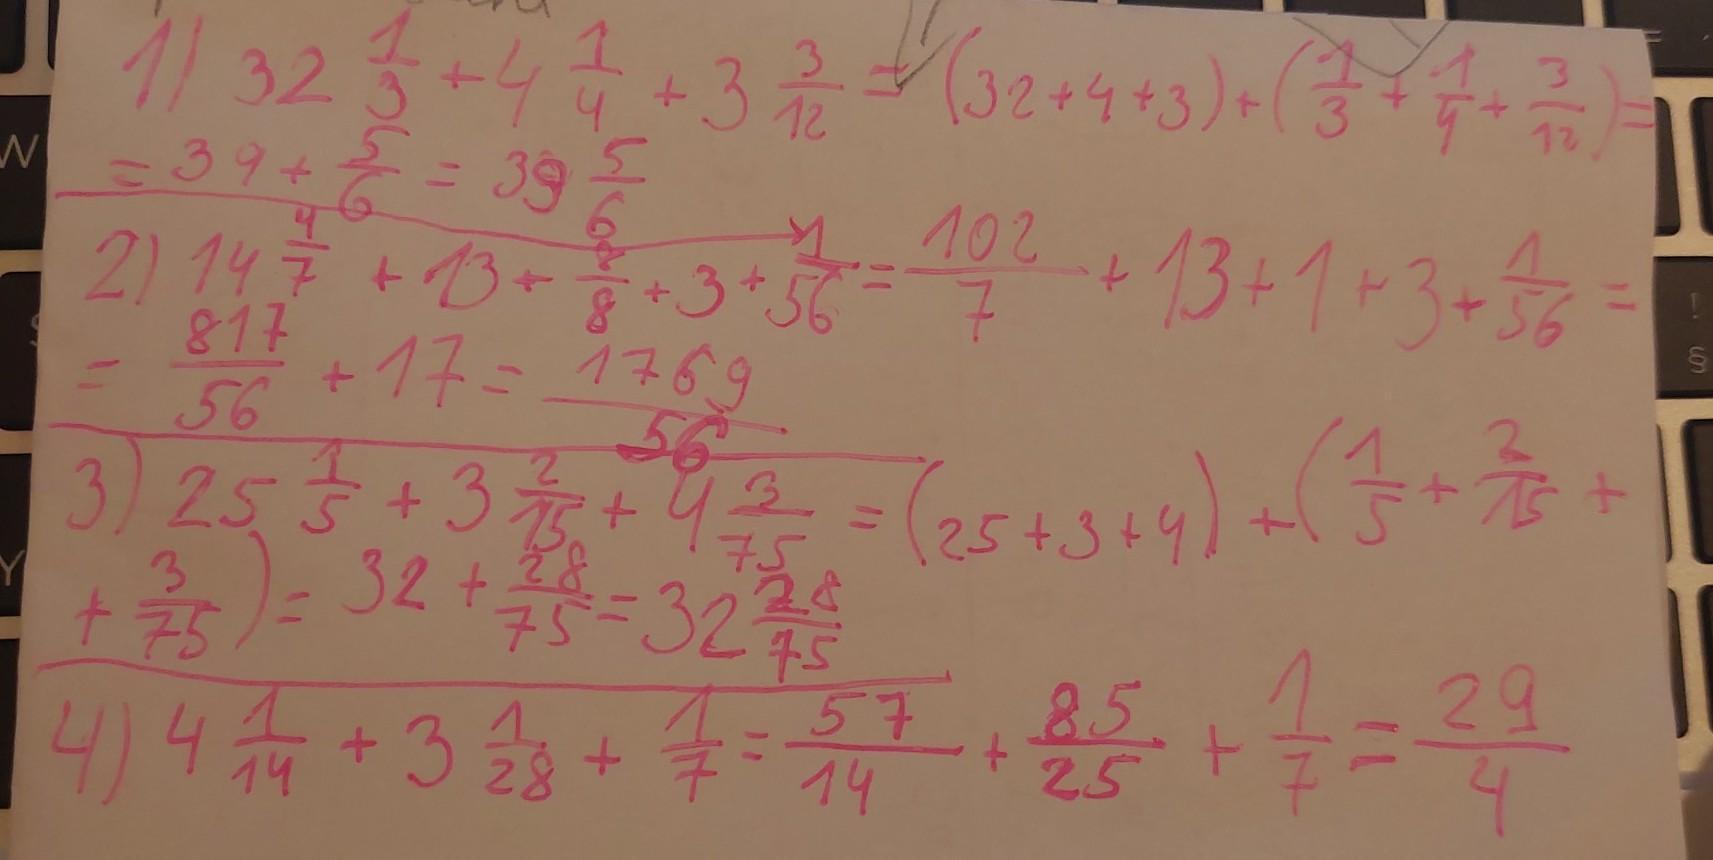 1) 32 1/3 + 4 1/4 + 3 3/12 = (32+4+3) + (1/3 + 1/4 + 3/12) =
= 39 + 5/6 = 39 5/6
2) 14 4/7 + 13 + 8/8 + 3 + 1/56 = 102/7 + 13 + 1 + 3 + 1/56 =
= 817/56 + 17 = 1769/56
3) 25 1/5 + 3 2/15 + 4 3/75 = (25+3+4) + (1/5 + 2/15 +
+ 3/75) = 32 + 28/75 = 32 28/75
4) 4 1/14 + 3 1/28 + 1/7 = 57/14 + 85/25 + 1/7 = 29/4